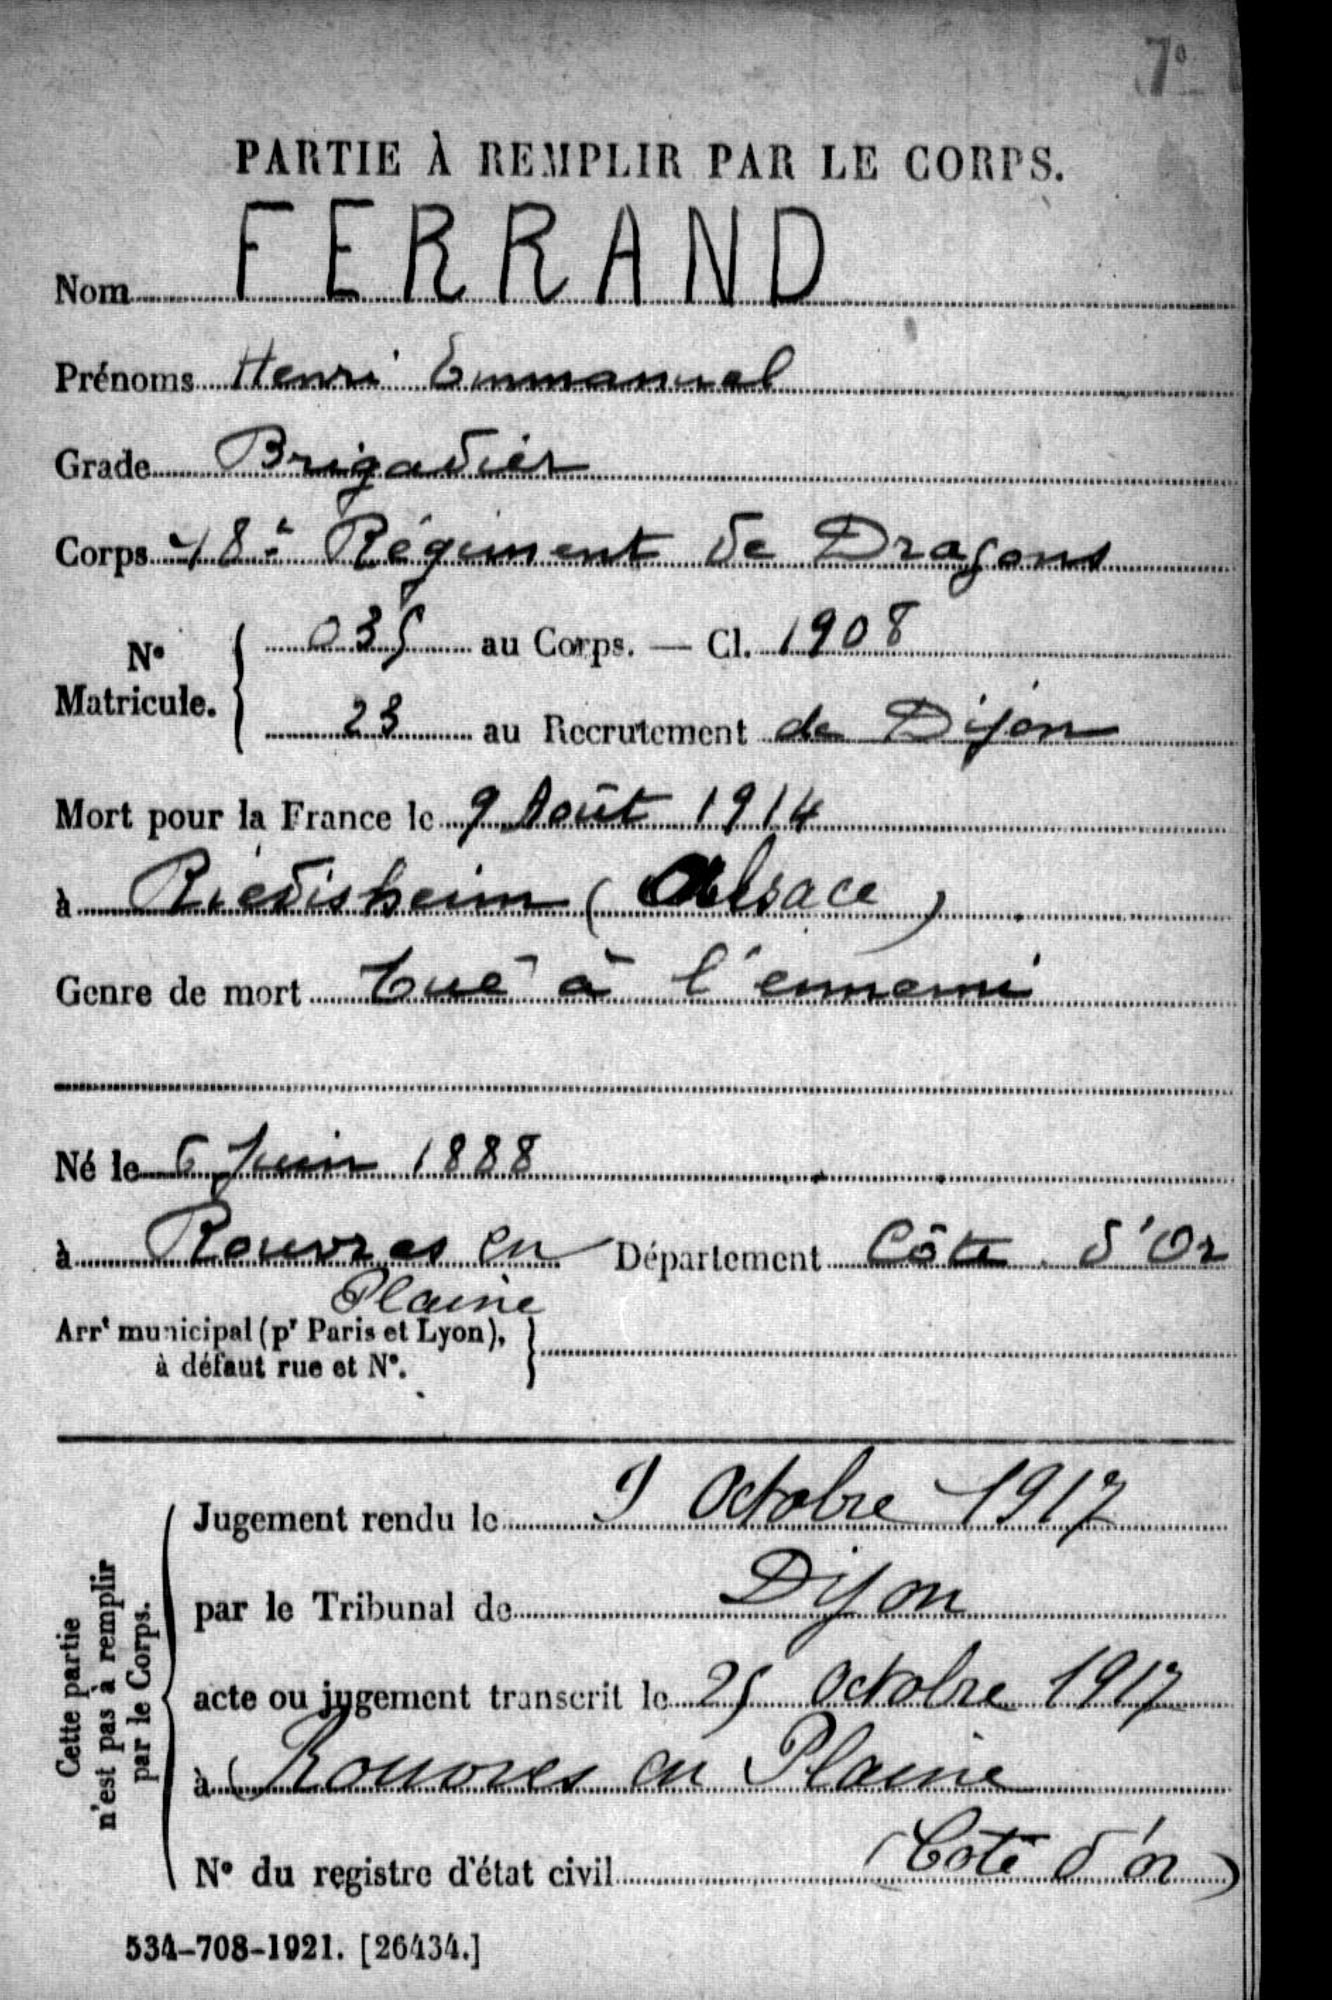 7º
PARTIE À REMPLIR PAR LE CORPS.
Nom FERRAND
Prénoms Henri Emmanuel
Grade Brigadier
Corps 18è Régiment de Dragons
Nº Matricule. 035 au Corps. — Cl. 1908
23 au Recrutement de Dijon
Mort pour la France le 9 Août 1914
à Riedisheim (Alsace)
Genre de mort Tué à l'ennemi
Né le 6 Juin 1888
à Rouvres en Département Côte d'Or
Plaine
Arrt municipal (pr Paris et Lyon),
à défaut rue et Nº.
Jugement rendu le 9 Octobre 1917
par le Tribunal de Dijon
acte ou jugement transcrit le 25 Octobre 1917
à Rouvres en Plaine
Nº du registre d'état civil (Côte d'or)
Cette partie
n'est pas à remplir
par le Corps.
534-708-1921. [26434.]